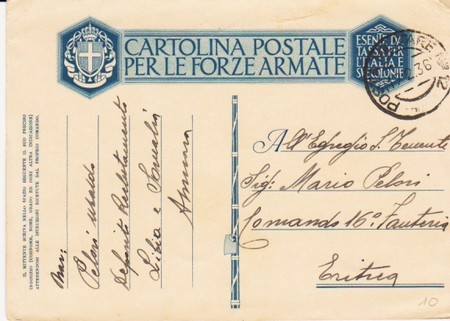 CARTOLINA POSTALE
PER LE FORZE ARMATE
ESENTE DA
TASSA PER
L'ITALIA E
SUE COLONIE
POSTA MILITARE N° 2
.36
IL MITTENTE SCRIVA NELLO SPAZIO SEGUENTE IL SUO PRECISO
INDIRIZZO (COGNOME, NOME, GRADO ED OGNI ALTRA INDICAZIONE)
ATTENENDOSI ALLE ISTRUZIONI RICEVUTE DAL PROPRIO COMANDO.
Pelosi
Deposito
Libia e Somalia
All'Egregio S. Tenente
Sig: Mario Pelosi
Comando 16° Fanteria
Eritrea
10